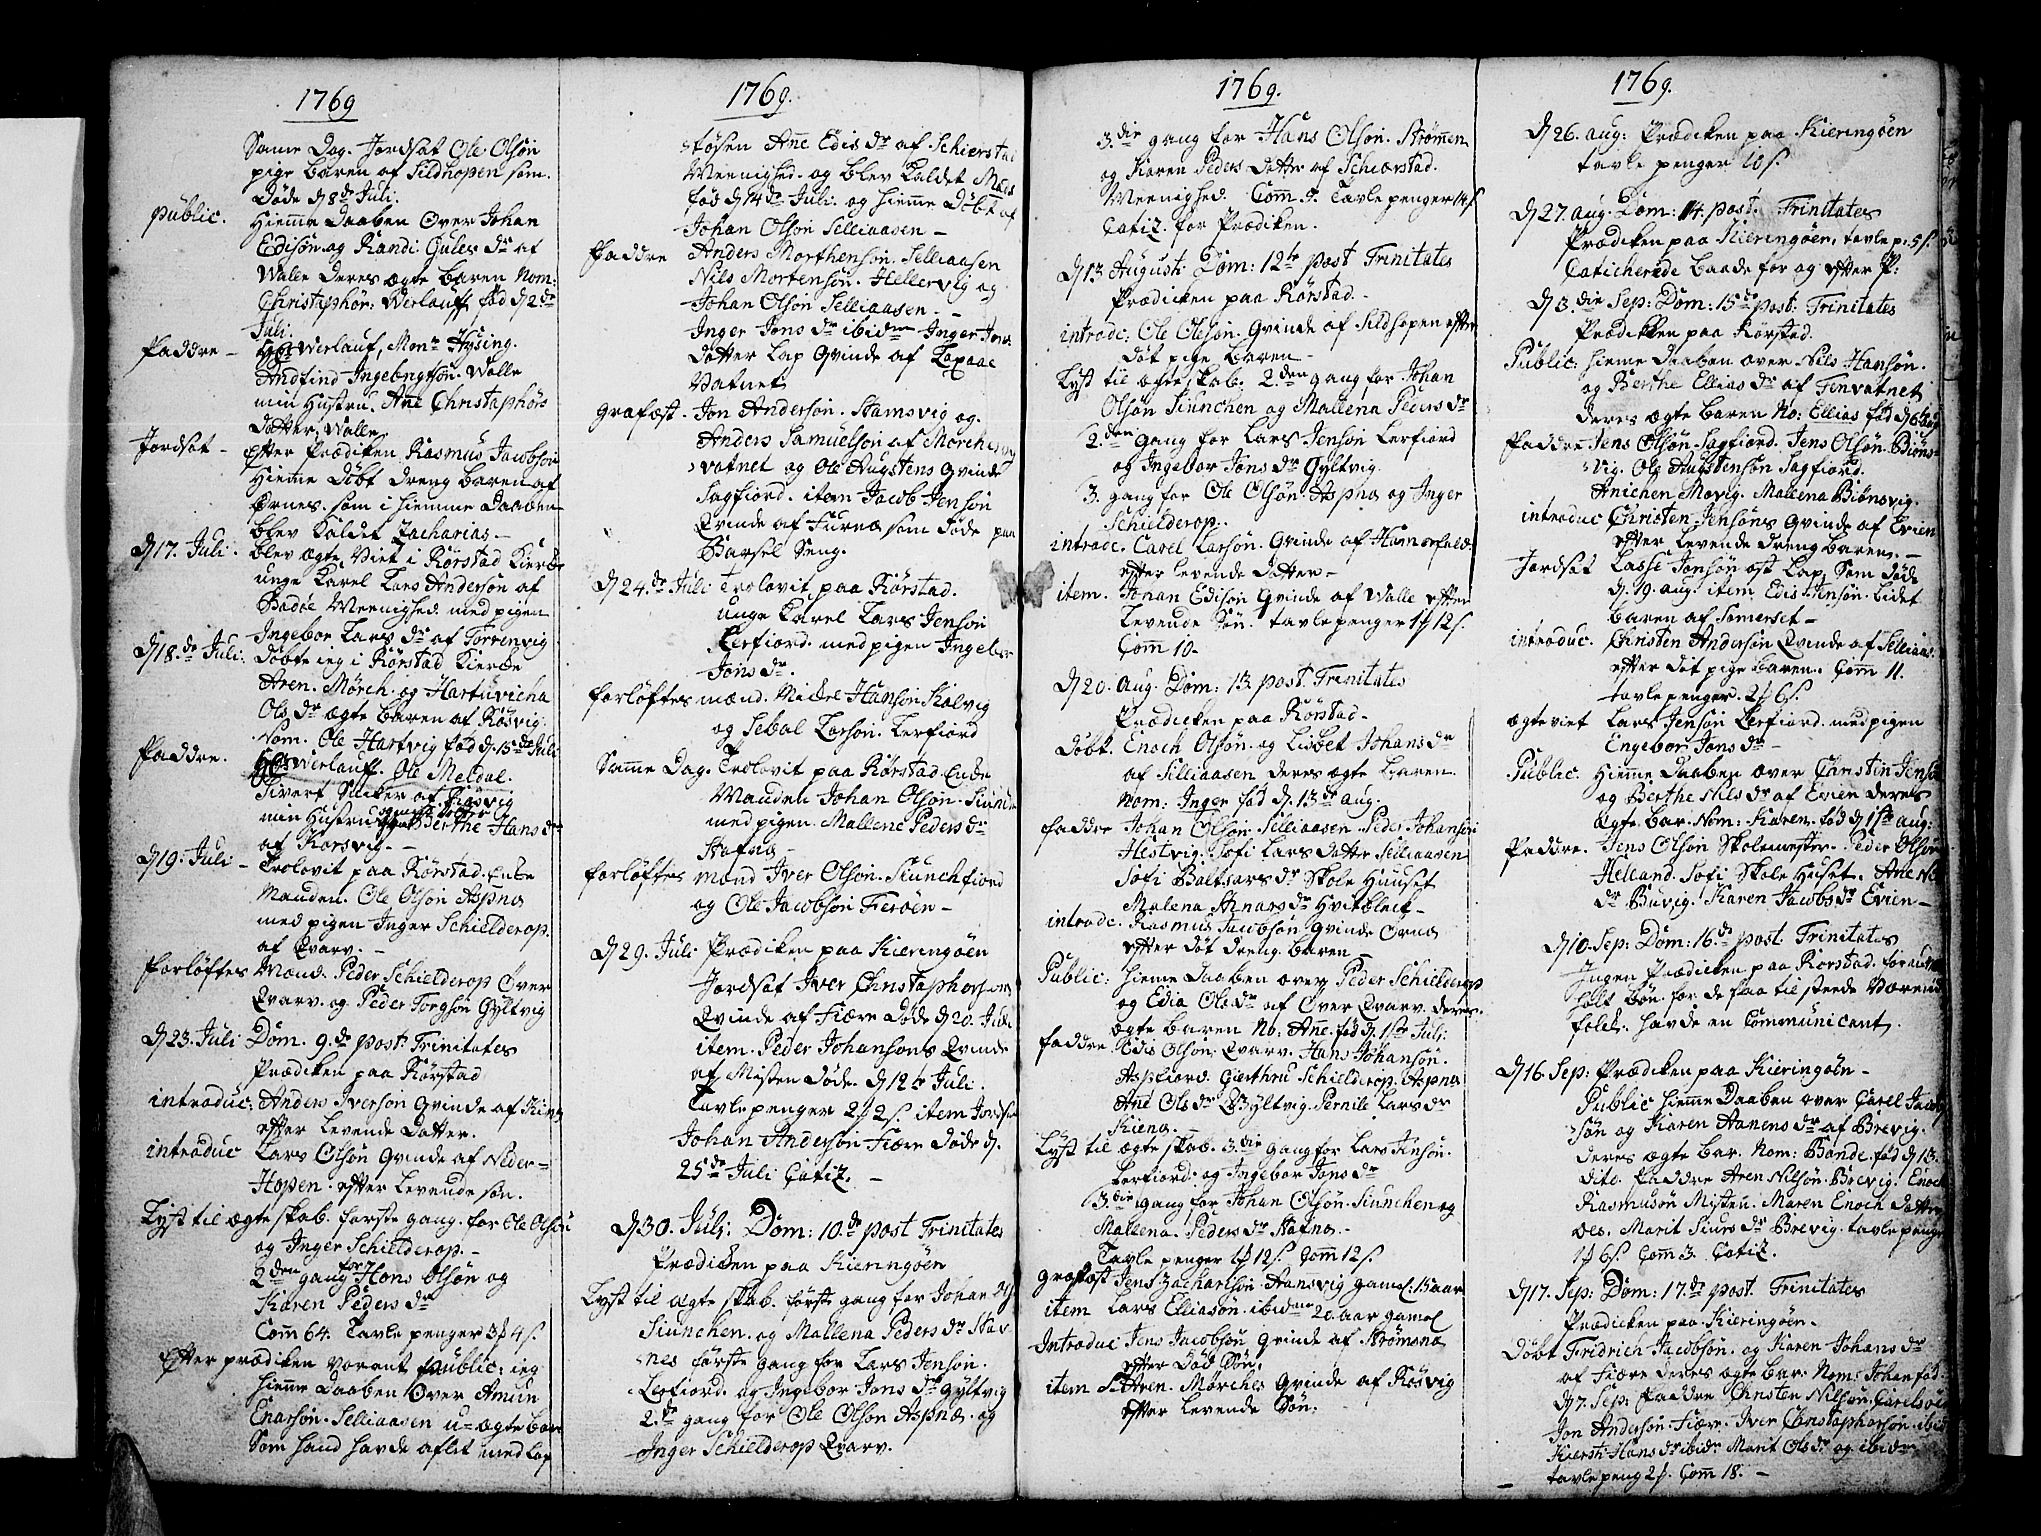 1769
Same Dag. Jordsat Ole Olsøn
pige baren af Sildhopen som.
Døde d 8de Juli.
public. Hieme Daaben Over Johan
Edisøn og Randi Gules dr af
Walle deres ægte baren Nom:
Christophør: Werlauff fød d 2de
Juli.
Faddre – Hr Werlauf, Monr Hysing.
Andfind Walle
min Hustru. Ane Christaphørs
datter, Walle
Jordsat – Efter Prædiken Rasmus Jacobsøn
Hieme Døbt dreng baren af
Ørnes. som i hiemme Daaben
blev Kaldet Zacharias. –
d 17. Juli. blev ægte Viet i Rørstad Kierke
unge Karel Lars Andersøn af
Bodøe Meenighed med pigen
Ingebor Lars dr af Torrenvig
d 18.de Juli: døbte ieg i Rørstad Kierke
Aren. Mørch og Hartuvicha
Ols dr ægte baren af Røsvig
Nom. Ole Hartvig fød d. 15de Juli
Faddre. Hr Werlauff. Ole Meldal.
Sivert af Røsvig
min Hustru Berthe Hans dr
af Korsvig. –
d 19. Juli – Trolovit paa Rørstad. Enke
Manden. Ole Olsøn Aspnes
med pigen Inger Schielderop.
af Qvarv. –
forløftes Mænd. Peder Schielderop Over
Qvarv. og Peder Torgsøn Gyltvig
d 23. Juli Dom. 9.de post Trinitates
Prædiken paa Rørstad
introduc: Anders Iversøn Qvinde af
efter levende Datter.
introduc Lars Olsøn Qvinde af Neder=
Hopen. efter levende søn.
Lyst til ægte skab. første gang. for Ole Olsøn
og Inger Schielderop. –
2den gang for Hans Olsøn og
Karen Peders dr
Com 64. Tavle penger 3 4 s.
Efter prædiken vorant public: ieg
hieme Daaben Over Amun
Enarsøn. Selliaasen u=ægte barn
Som hand havde aflet med Lap
1769.
tøsen Ane Edis dr af Schierstad
Meenighed. og blev Kaldet Mads
fød d 14de Juli. og hieme Døbt af
Johan Olsøn Selliaasen –
Faddre Anders Morthensøn. Selliaasen
Nils Mortensøn. Hellervig og
Johan Olsøn Selliaasen. –
Inger Jons dr ibidem Inger Jons
datter Lap Qvinde af Laxaae
Vatnet
Grafæst. Jon Andersøn. Stamsvig og.
Anders Samuelsøn af Mørch
vatnet og Ole Augstens Qvinde
Sagfiord. item Jacob Jensøn
Qvinde af Furnes som Døde paa
Barsel Seng.
d 24.de Juli Trolovit paa Rørstad.
unge Karel Lars Jensøn
Lerfiord. med pigen Ingebor
Jons dr.
forløftes mænd. Mickel Hansøn Kalvig
og Sebal Larsøn. Lerfiord
Same Dag. Trolovit paa Rørstad. Enke
Manden Johan Olsøn.
med pigen. Mallene Peders dr
Stafnes –
forløftes mænd Iver Olsøn. Siunchfiord
og Ole Jacobsøn Ferøen –
d 29. Juli Prædiken paa Kieringøen
Jordsat Iver Christaphersøn
Qvinde af Fiære Døde d 20. Juli
item. Peder Johansøns Qvinde
af Misten Døde. d 12te Juli.
Tavlepenger 2 2 s. item Jordsat
Johan Andersøn Fiære Døde d.
25de Juli Catiz. –
d 30. Juli: Dom: 10.de post Trinitates
Prædiken paa Kieringøen
Lyst til ægte skab. første gang for Johan
Siunchen. og Mallena Peders dr Stav
nes første gang for Lars Jensøn.
Lerfiord. og Ingebor Jons dr Gyltvig
2.de gang for Ole Olsøn Aspnes. og
Inger Schielderop Qvarv.
1769.
3.die gang for Hans Olsøn. Strømen
og Karen Peders Datter af Schierstad.
Meenighed. Com 9. Tavle penger 14 s
Catiz. for Prædiken.
d 13 Augusti Dom: 12te post Trinitates
Prædiken paa Rørstad. –
introdc: Ole Olesøn. Qvinde af Sildhopen efter
døt pige baren –
Lyst til ægte skab. 2.den gang for Johan
Olsøn Siunchen og Mallena Peders dr
2.den gang for Lars Jensøn Lerfiord
og Ingebor Jons dr Gyltvig.
3. gang for Ole Olsøn Aspnes og Inger
Schielderop.
introdc. Carel Larsøn. Qvinde af Hamerfald.
efter levende datter –
item. Johan Edisøn Qvinde af Walle efter
Levende Søn. tavlepenger 1 12 s.
Com 10.
d 20. Aug. Dom: 13. post. Trinitates
Prædicken paa Rørstad. –
Døbt. Enoch Olsøn. og Lisbet Johans dr
af Selliaasen deres ægte baren.
Nom: Inger fød d. 13de Aug.
faddre Johan Olsøn. Selliaasen. Peder Johansøn
Hestvig. Sofi Lars datter Selliaasen
Sofi Baltsars dr Skole Huuset
Malena Anars dr –
introdc. Rasmus Jacobsøn Qvinde Ørnes
efter døt dreng. baren –
Public: hieme daaben over Peder Schielderop
og Edia Ole dr af Over Qvarv. deres.
ægte baren No. Ane. fød d. 1ste Juli:
faddre Edis Olsøn. Qvarv. Hans Johansøn.
Aspfiord. Gierthru Schielderop. Aspnes
Ane Ols dr Gyltvig. Pernile Lars dr
Kienes.
Lyst til ægte skab. 3.die gang for Lars Jensøn.
Lerfiord. og Ingebor Jons dr
3.die gang for Johan Olsøn. Siunchen og
Mallena. Peders dr Stafnes. –
Tavle penger 1 12 s. Com 12 s.
Grafæst Jens Zacharisøn. Hansvig gamel: 15 aar
item Lars Elliasøn. ibidem 20. aar gamel
Introduc Jens Jacobsøn Qvinde af Strømsnes
efter Død Søn.
item Sr Aren. Mørches Qvinde af Røsvig
efter levende Søn.
1769.
d 26. Aug: Prædiken paa Kieringøen
tavle penger 10 s.
d 27. Aug. Dom: 14. post. Trinitates
Prædiken paa Kieringøen. tavle p. 5 s.
Caticherede baade for og efter P:
d 3.die Sep: Dom: 15de post: Trinitates
Prædikken paa Rørstad.
Public: hieme daaben over. Nils Hansøn.
og Berthe Ellias dr af Tenvatnet
deres ægte baren No: Ellias fød d 6 Aug
Faddre Jens Olsøn. Sagfiord. Jens Olsøn. Biøns
vig. Ole Augstensøn Sagfiord.
Anichen Movig. Mallena Biønsvig.
introduc Christen. Jensøns Qvinde af Evien
efter Levende dreng baren. –
Jordsat Lasse Jonsøn ost Lap. Som Døde
d. 19. aug. item Edis Jensøn. Lidet
baren af Somerset –
introduc. Christen Andersøn Qvinde af Selliaas.
efter døt pige baren. Com 11.
tavle penger. 2 6 s.
ægte viet Lars Jensøn Lerfiord. med pigen
Engebor Jons dr –
Public. Hieme Daaben over Christen Jensøn
og Berthe Nils dr af Evien deres
ægte. bar. Nom: Karen. fød d 1ste aug:
Faddre. Jens Olsøn Skolemester. Peder Olsøn
Helland. Sofi Skole Huset. Ane
dr Buvig. Karen Jacobs dr Evien –
d 10. Sep: Dom: 16.de post. Trinitates
Ingen Prædiken paa Rørstad. foruden
holt Bøn for de faa til stæde Værende
folk. havde en Communicant.
d 16. Sep: Prædiken paa Kieringøen –
Public hieme Daaben over Carel Jacob
søn og Karen Hanens dr af Brevig.
deres ægte bar. Nom: Bande. fød d 13.
dito. Faddre Aren Nilsøn. Brevig. Enoch
Rasmusøn Misten. Maren Enoch datter
oes. Marit Siurs dr Brevig. tavle penger
1 6 s. Com 3. Catiz.
d 17. Sep: Dom: 17.de post. Trinitates
Prædicken paa. Kieringøen. –
Døbt Fridrich Jacobsøn. og Karen Johans dr
af Fiære deres ægte bar. Nom: Johan fød.
d 7. Sep: Faddre Christen Nilsøn.
Jon Andersøn. Fiære. Iver Christopharsøn. ibid
Kiersti Hans dr ibidem Marit Ols dr og ibidem
tavle peng 2. Com 18. –